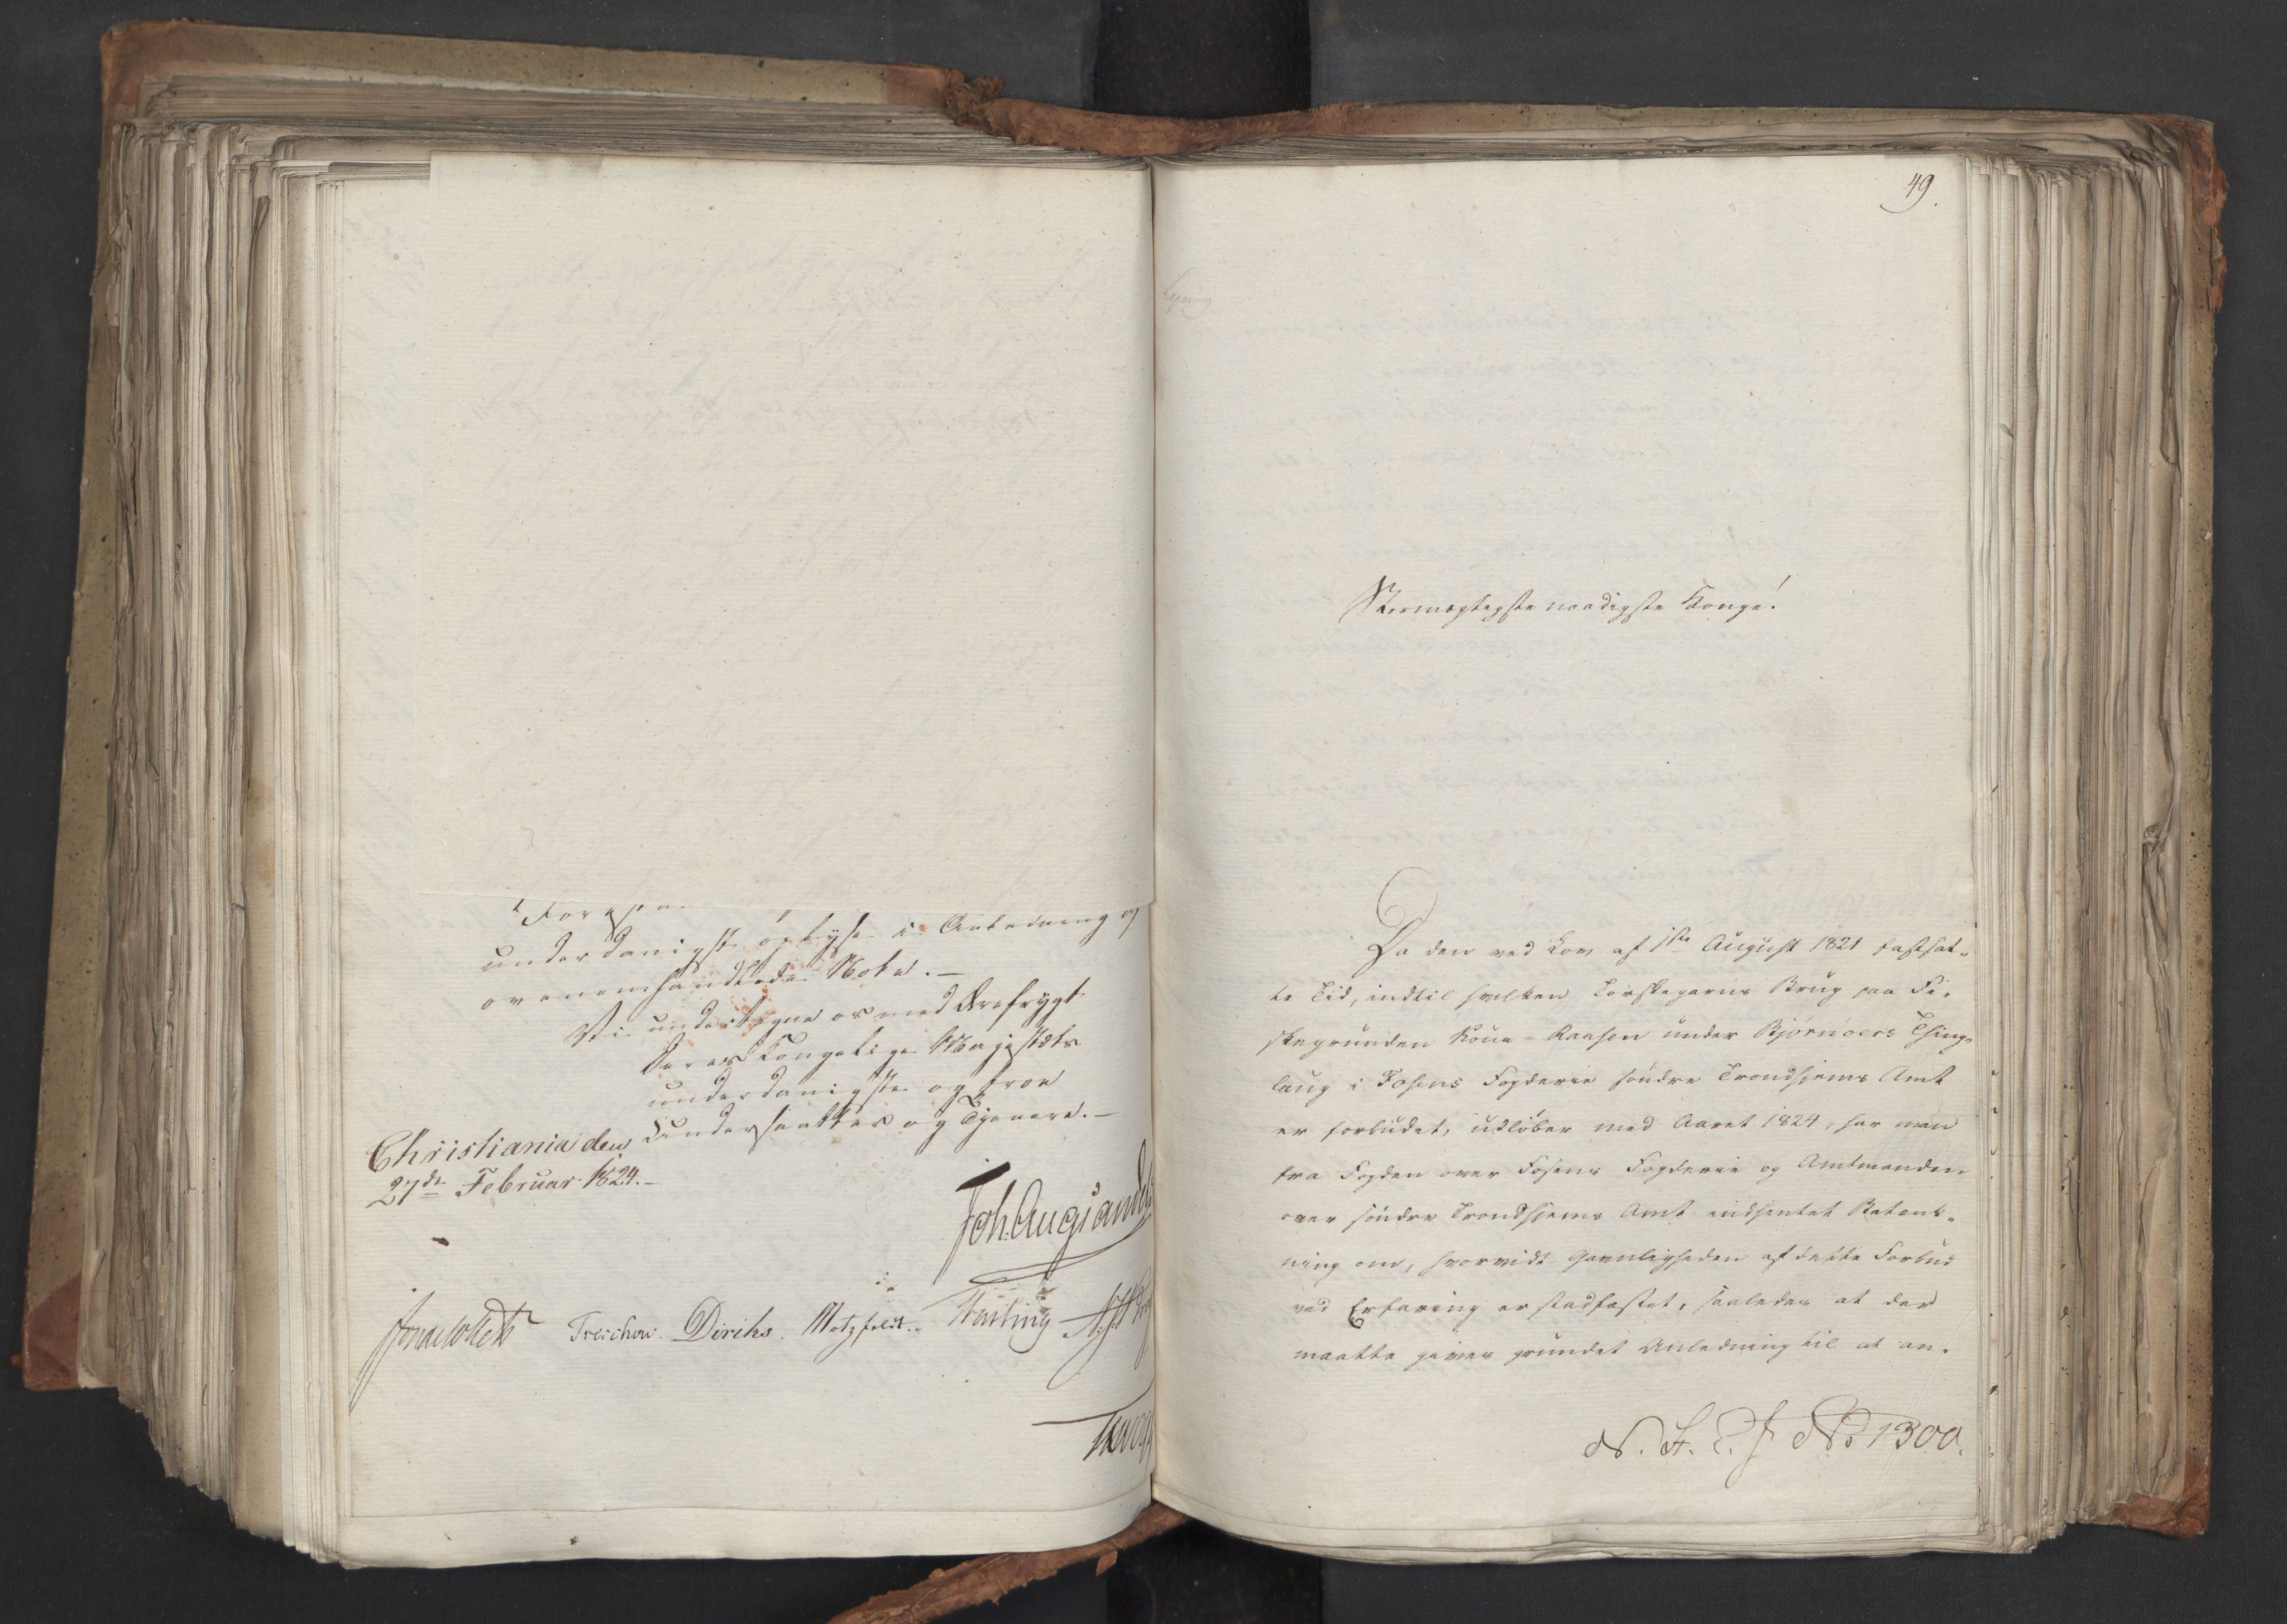 underdanigst oplyse i Anledning af
ovenomhandlede Note. —
Vi undertegne os med Ærefrygt
Deres Kongelige Majestæts
underdanigste og troe
Undersaatter og Tjenere. —
Christiania den
27de Februar 1824. —
Joh: Aug: Sandels
Jonas Collett Treschow. Diriks. Motzfeldt. Fasting
49.
Stormægtigste naadigste Konge!
Da den ved Lov af 1ste August 1821 fastsat-
te Tid, indtil hvilken Torskegarns Brug paa Fi-
skegrunden Koua-Raasen under Bjørnøers Thing-
laug i Fosens Fogderie søndre Trondhjems Amt
er forbudet, udløber med Aaret 1824, har man
fra Fogden over Fosens Fogderie og Amtmanden
over søndre Trondhjems Amt indhentet Betænk-
ning om, hvorvidt Gavnligheden af dette Forbud
ved Erfaring er stadfæstet, saaledes at der
maatte gives grundet Anledning til at an-
No 1300.